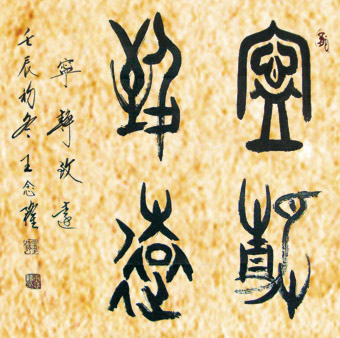 寧靜
致遠
寧靜致遠
壬辰初冬王念